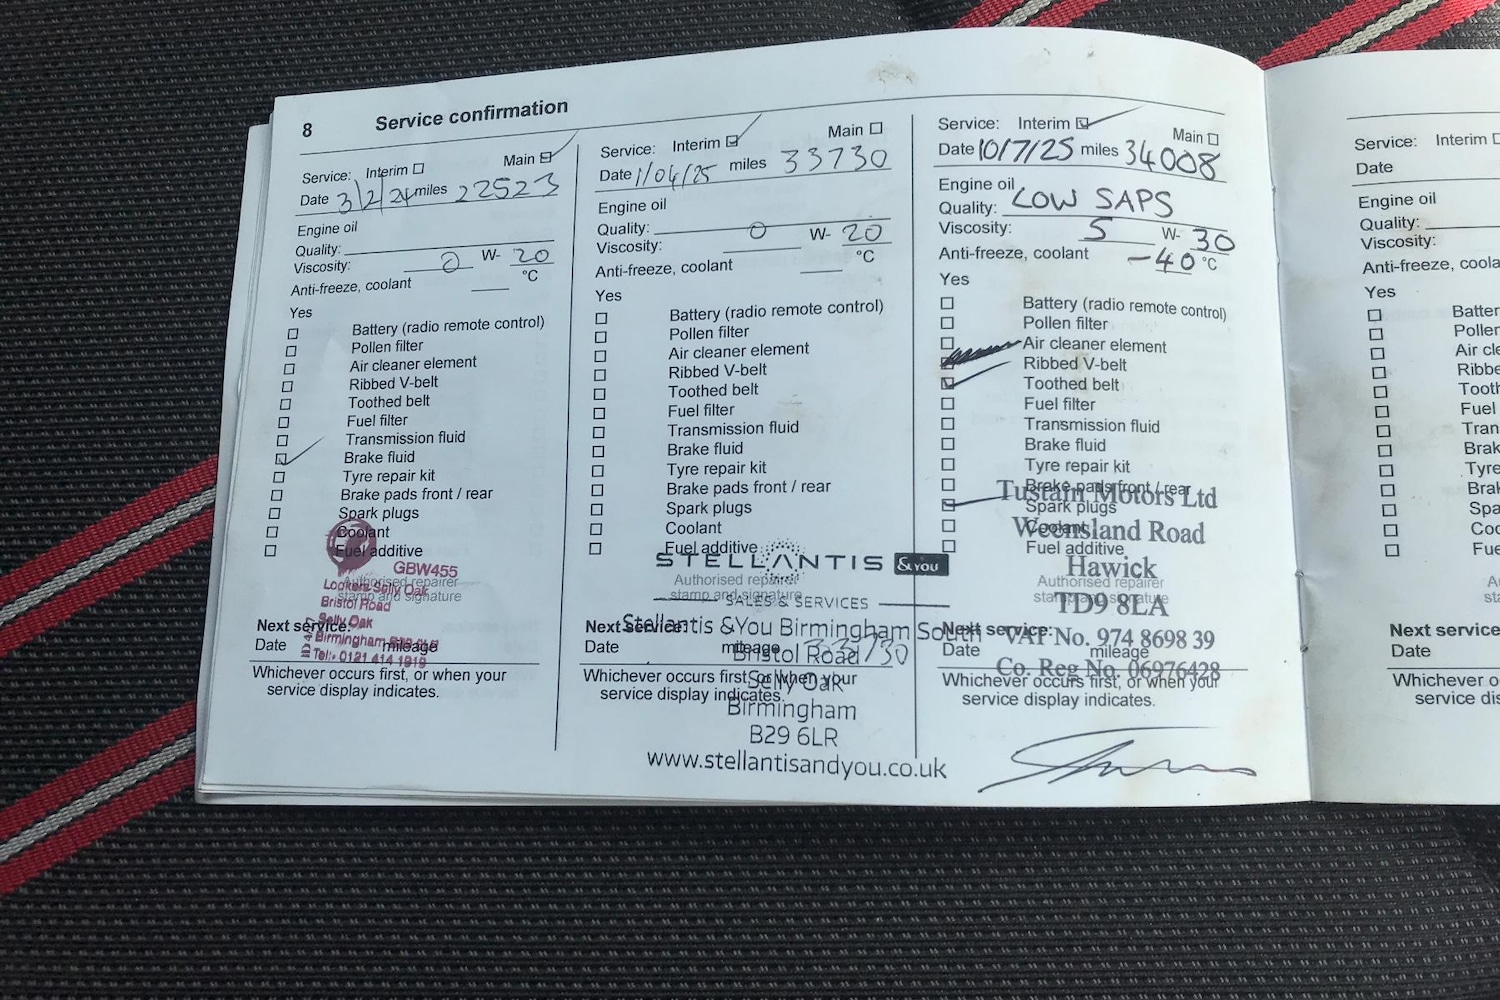 8 Service confirmation
Service: Interim Main
Date 3/2/24 miles 22523
Engine oil
Quality:
Viscosity: 0 W- 20
Anti-freeze, coolant °C
Yes
Battery (radio remote control)
Pollen filter
Air cleaner element
Ribbed V-belt
Toothed belt
Fuel filter
Transmission fluid
Brake fluid
Tyre repair kit
Brake pads front / rear
Spark plugs
Coolant
Fuel additive
GBW455
Authorised repairer
stamp and signature
Lookers Selly Oak
Bristol Road
Selly Oak
Birmingham B29 6LR
Tel:- 0121 414 1919
Next service:
Date mileage
Whichever occurs first, or when your
service display indicates.
Service: Interim Main
Date 1/04/25 miles 33730
Engine oil
Quality:
Viscosity: 0 W- 20
Anti-freeze, coolant °C
Yes
Battery (radio remote control)
Pollen filter
Air cleaner element
Ribbed V-belt
Toothed belt
Fuel filter
Transmission fluid
Brake fluid
Tyre repair kit
Brake pads front / rear
Spark plugs
Coolant
Fuel additive
STELLANTIS &YOU
Authorised repairer
stamp and signature
SALES & SERVICES
Stellantis &You Birmingham South
Next service:
Date mileage 33730
Bristol Road
Whichever occurs first, or when your
Selly Oak
service display indicates.
Birmingham
B29 6LR
www.stellantisandyou.co.uk
Service: Interim Main
Date 10/7/25 miles 34008
Engine oil
Quality: LOW SAPS
Viscosity: 5 W- 30
Anti-freeze, coolant -40 °C
Yes
Battery (radio remote control)
Pollen filter
Air cleaner element
Ribbed V-belt
Toothed belt
Fuel filter
Transmission fluid
Brake fluid
Tyre repair kit
Brake pads front / rear
Tustain Motors Ltd
Spark plugs
Coolant
Weensland Road
Fuel additive
Hawick
Authorised repairer
stamp and signature
TD9 8LA
Next service:
VAT No. 974 8698 39
Date mileage
Co. Reg No. 06976428
Whichever occurs first, or when your
service display indicates.
Service: Interim
Date
Engine oil
Quality:
Viscosity:
Anti-freeze, coola
Yes
Batter
Pollen
Air cle
Ribbe
Tooth
Fuel
Tran
Brak
Tyre
Bral
Spa
Coc
Fue
Next service
Date
Whichever o
service dis